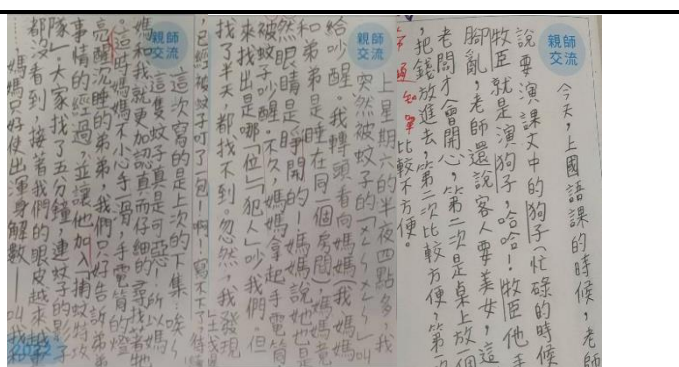 親師交流
今天,上國語課的時候,老師
說要演課文中的狗子(忙碌的時候
牧臣就是演狗子,哈哈!牧臣他手
腳亂,老師還說客人要美女,這
老闆才會開心,第二次是桌上放一個
,把錢放進去,第二次比較方便,第一次
比較不方便。
親師交流
上星期六的半夜四點多,我
突然被蚊子的「ㄨㄥㄨㄥ」叫
給吵醒。我轉頭看向媽媽(我、媽媽
和弟弟是睡在同一個房間)媽媽竟
然眼睛是睜開的!媽媽說她也是
被蚊子吵醒。不久,媽媽拿起手電筒
來找出是哪「位」「犯人」吵我們。但
找了半天,都找不到。忽然,我發現
,已經被蚊子叮了一包!啊!寫不下了,
親師交流
這次寫的是上次的下集。唉~
這隻蚊子真是可惡!所以媽
媽和我就更加認真而仔細的尋找著牠
。這時媽媽不小心手滑,手電筒的燈
亮醒沉睡的弟弟,我們只好告訴弟弟
事情的經過,並讓他加入「捕蚊特攻
隊」,大家找了五分鐘,連蚊子的影子
都沒看到,接著我們的眼皮越來越重
,媽媽只好使出渾身解數!叫我和